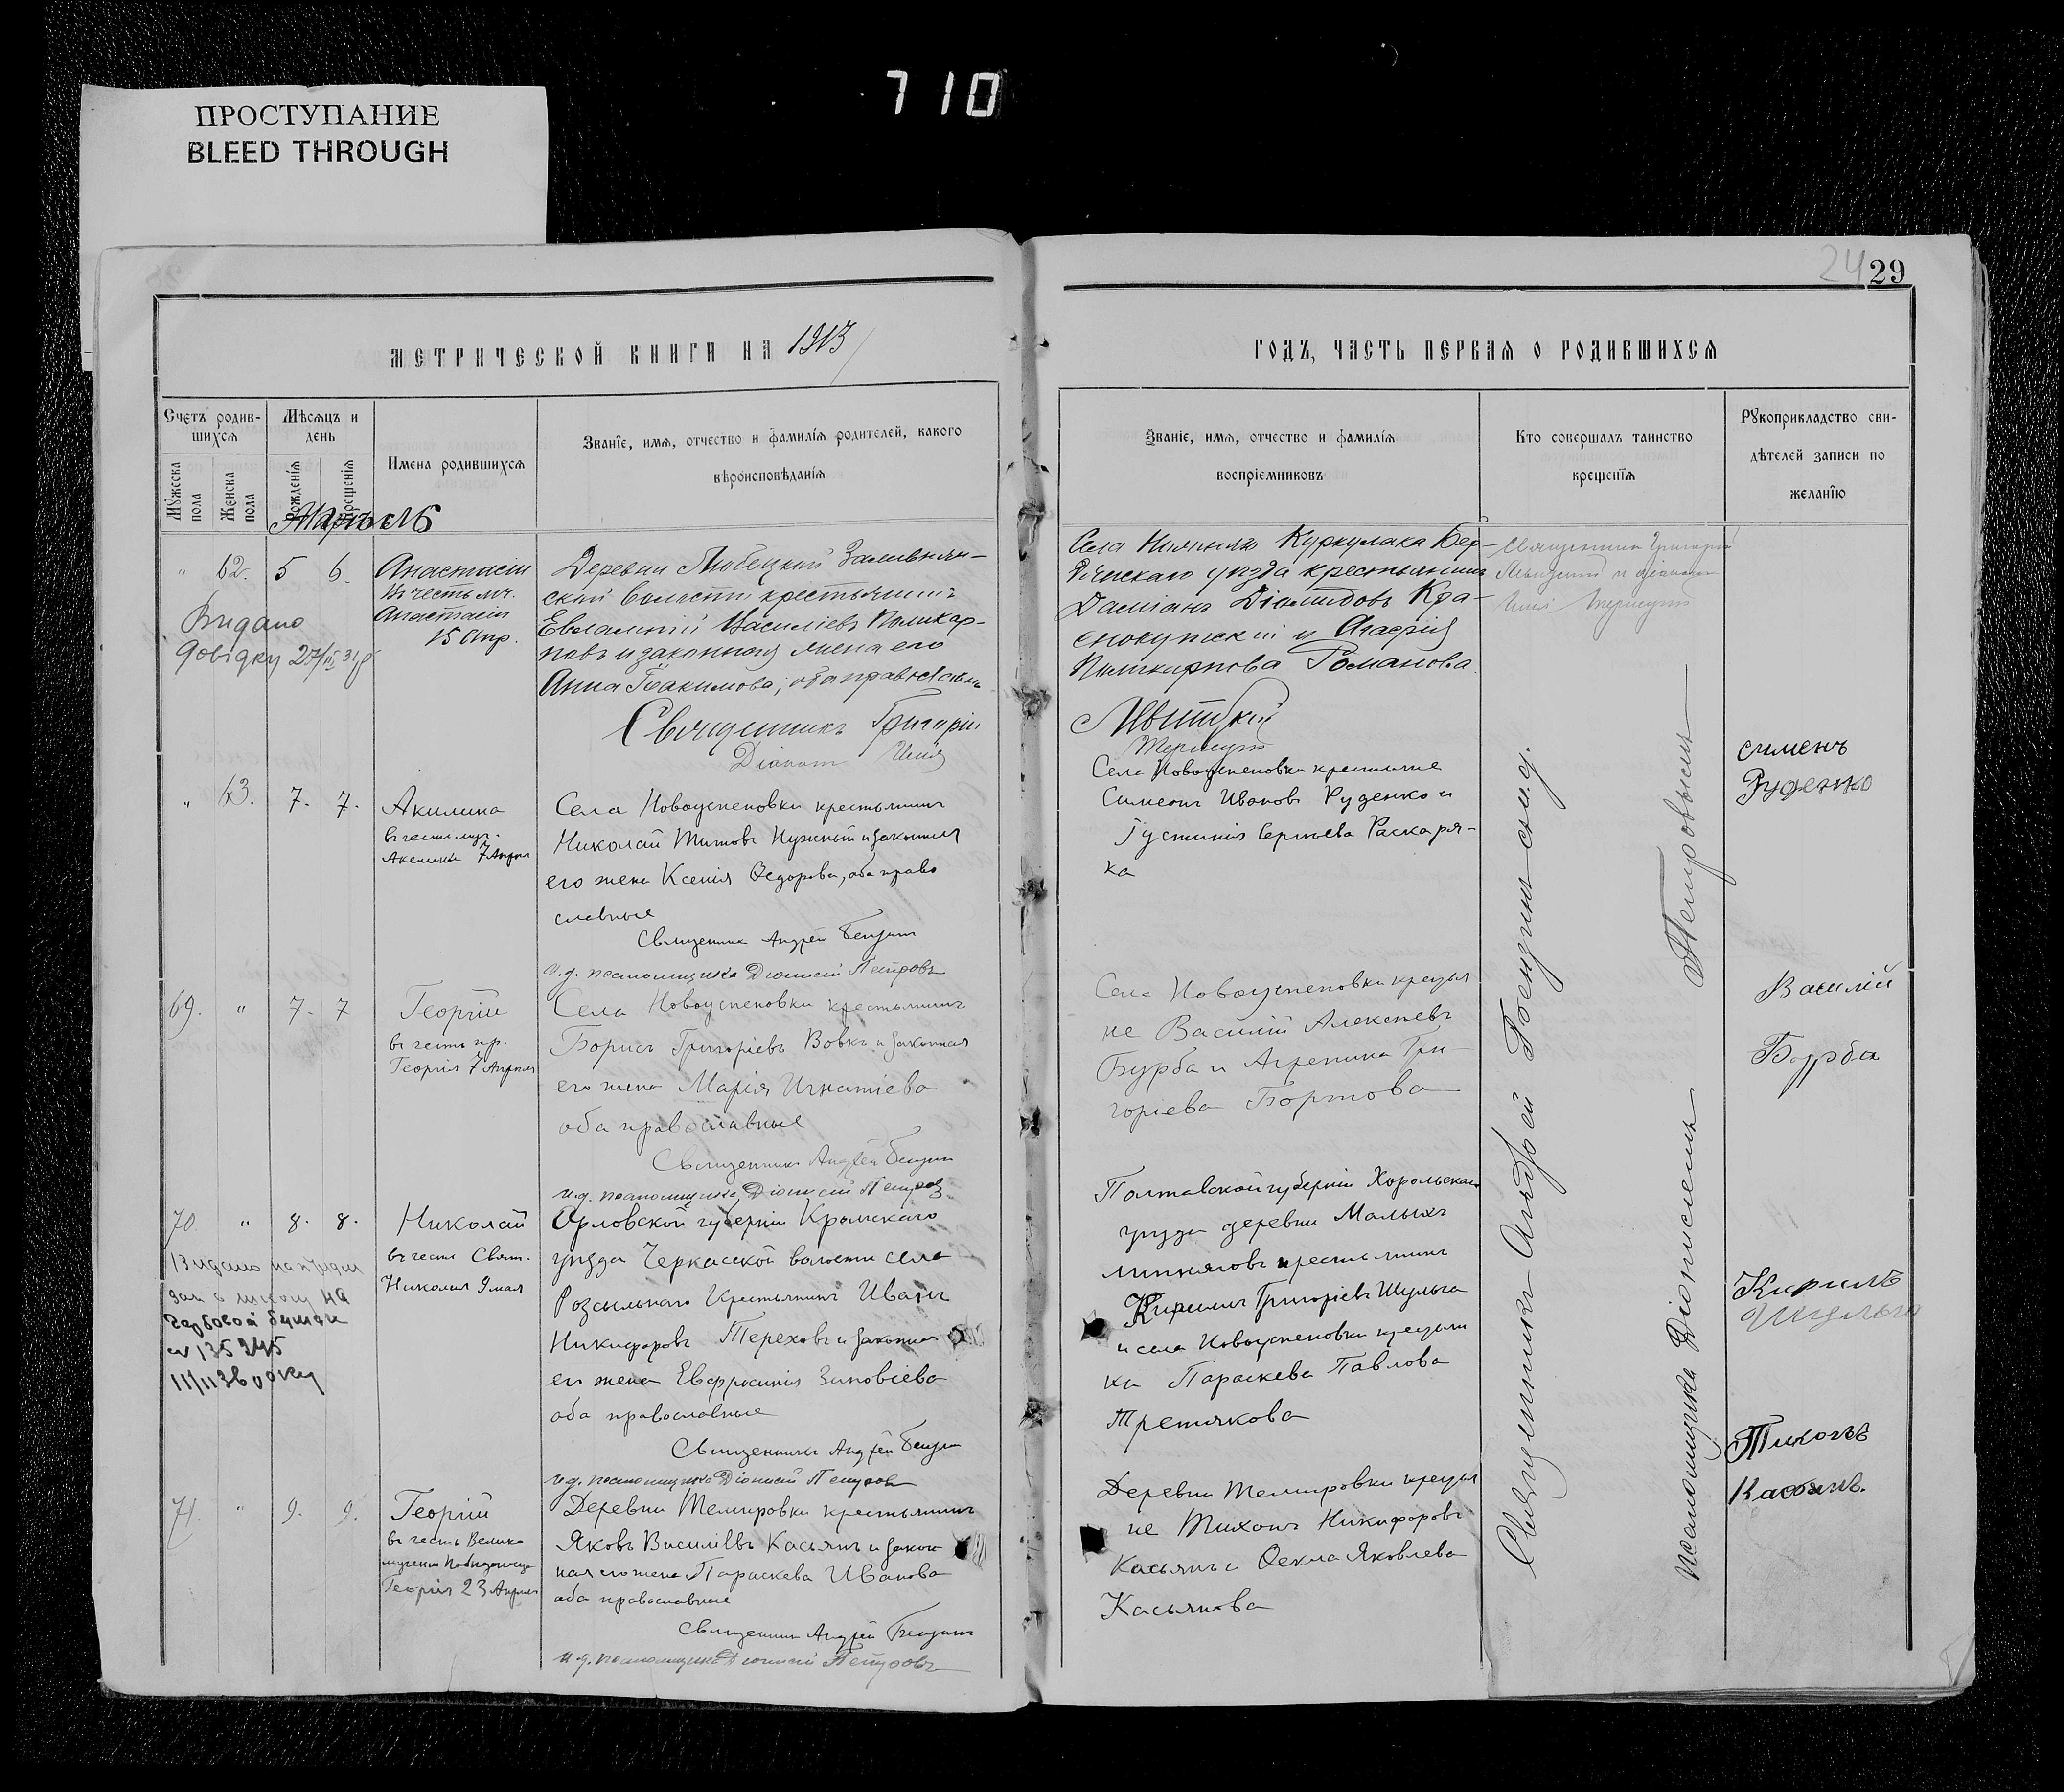 710
ПРОСТУПАНИЕ
BLEED THROUGH
24 29
МЕТРИЧЕСКОЙ КНИГИ НА 1913
ГОДЪ, ЧАСТЬ ПЕРВАЯ О РОДИВШИХСЯ
Счетъ родив-
шихся
Мужеска пола
Женска пола
Мѣсяцъ и
день
Рожденія
Крещенія
Имена родившихся
Званіе, имя, отчество и фамилія родителей, какого
вѣроисповѣданія
Званіе, имя, отчество и фамилія
воспріемниковъ
Кто совершалъ таинство
крещенія
Рукоприкладство сви-
дѣтелей записи по
желанію
Апрѣль
" 62. 5 6.
Анастасія
въ честь мч.
Анастасіи
15 Апр.
Видано
довідку
Деревни Любецкой Заливнян-
ской волости крестьянинъ
Евлампій Василіевъ Поликар-
повъ и законная жена его
Анна Іоакимова, оба православн
Священникъ Григорій
Діаконъ Илія
Села Куркулака Бер-
дянскаго уѣзда крестьянинъ
Даміанъ Діомидовъ Кра-
снокутскій и Агафія
Поликарпова Романова
Священникъ Григорій
и діаконъ
Илія
" 63. 7. 7.
Акилина
въ честь муч.
Акилины 7 Апрѣля
Села Новоуспеновки крестьянинъ
Николай Титовъ Нужный и законная
его жена Ксенія Ѳедорова, оба право
славные
Священникъ Андрей Бенгинъ
и.д. псаломщика Діонисій Петровъ
Села Новоуспеновки крестьяне
Симеонъ Ивановъ Руденко и
Іустинія Сергіева Раскаря-
ка
сименъ
Руденко
69. " 7. 7
Георгій
въ честь пр.
Георгія 7 Апрѣля
Села Новоуспеновки крестьянинъ
Борисъ Григоріевъ Вовкъ и законная
его жена Марія Игнатіева
оба православные
Священникъ Андрей Бенгинъ
и.д. псаломщика Діонисій Петровъ
Села Новоуспеновки крестья
не Василій Алексѣевъ
Бурба и Агрепина Гри-
горіева Бортова
Василій
Бурба
70. " 8. 8.
Николай
въ честь Свят.
Николая 9 мая
135245
Орловской губерніи Кромскаго
уѣзда Черкасской волости села
Розсыльнаго Крестьянинъ Иванъ
Никифоровъ Тереховъ и законная
его жена Евфросинія Зиновіева
оба православные
Священникъ Андрей Бенгинъ
и.д. псаломщика Діонисій Петровъ
Полтавской губерніи Хорольскаго
уѣзда деревни Малыхъ
Липняговъ крестьянинъ
Кириллъ Григоріевъ Шульга
и села Новоуспеновки крестьян
ка Параскева Павлова
Третякова
Кирилъ
Шульга
71. " 9. 9.
Георгій
въ честь Велико
мученика Побѣдоносца
Георгія 23 Апрѣля
Деревни Темировки крестьянинъ
Яковъ Василіевъ Касьянъ и закон
ная его жена Параскева Иванова
оба православные
Священникъ Андрей Бенгинъ
и.д. псаломщика Діонисій Петровъ
Деревни Темировки крестья
не Тихонъ Никифоровъ
Касьянъ и Ѳекла Яковлева
Касьянова
Тихонъ
Касьянъ.
Священникъ Андрей Бенгинъ съ и.д.
псаломщика Діонисіемъ Петровымъ